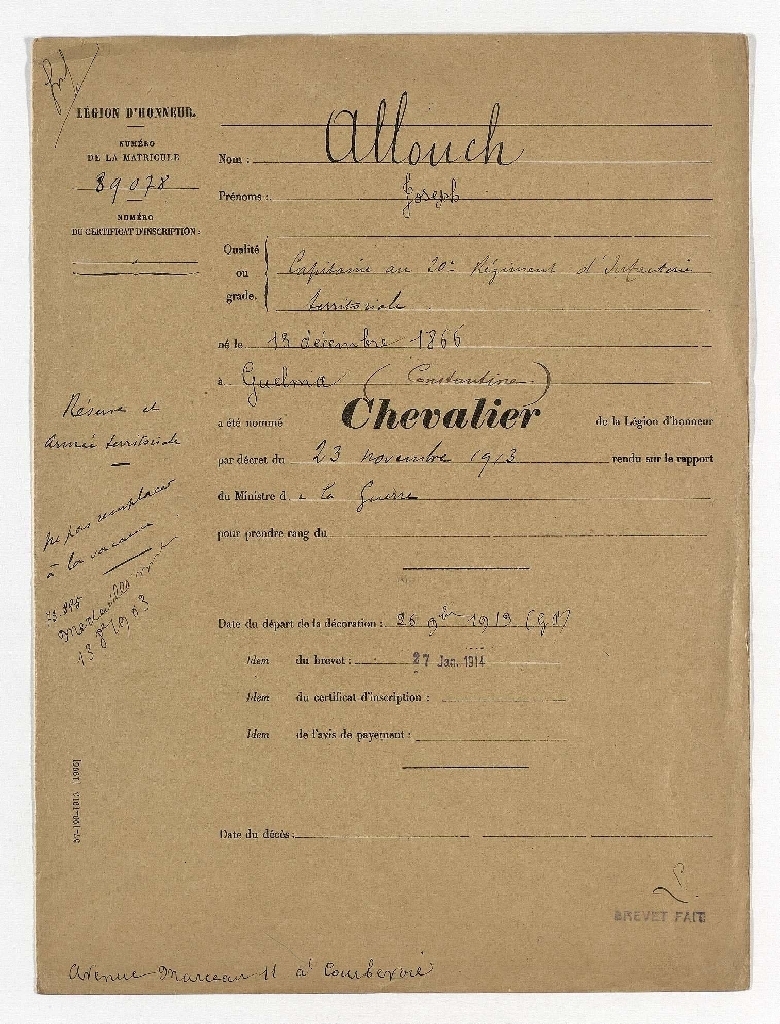 LÉGION D'HONNEUR.
NUMÉRO
DE LA MATRICULE
89078
NUMÉRO
DU CERTIFICAT D'INSCRIPTION :
Nom : Allouch
Prénoms : Joseph
Qualité ou grade. Capitaine au 20e Régiment d'Infanterie
territoriale
né le 13 décembre 1866
à Guelma (Constantine)
a été nommé Chevalier de la Légion d'honneur
par décret du 23 novembre 1913 rendu sur le rapport
du Ministre d e la Guerre
pour prendre rang du
Réserve et
Armée territoriale
ne pas remplacer
à la vacance
Date du départ de la décoration : 25 9bre 1913
Idem du brevet : 27 Jan. 1914
Idem du certificat d'inscription :
Idem de l'avis de payement :
Date du décès :
BREVET FAIT
Avenue Marceau 11 à Courbevoie